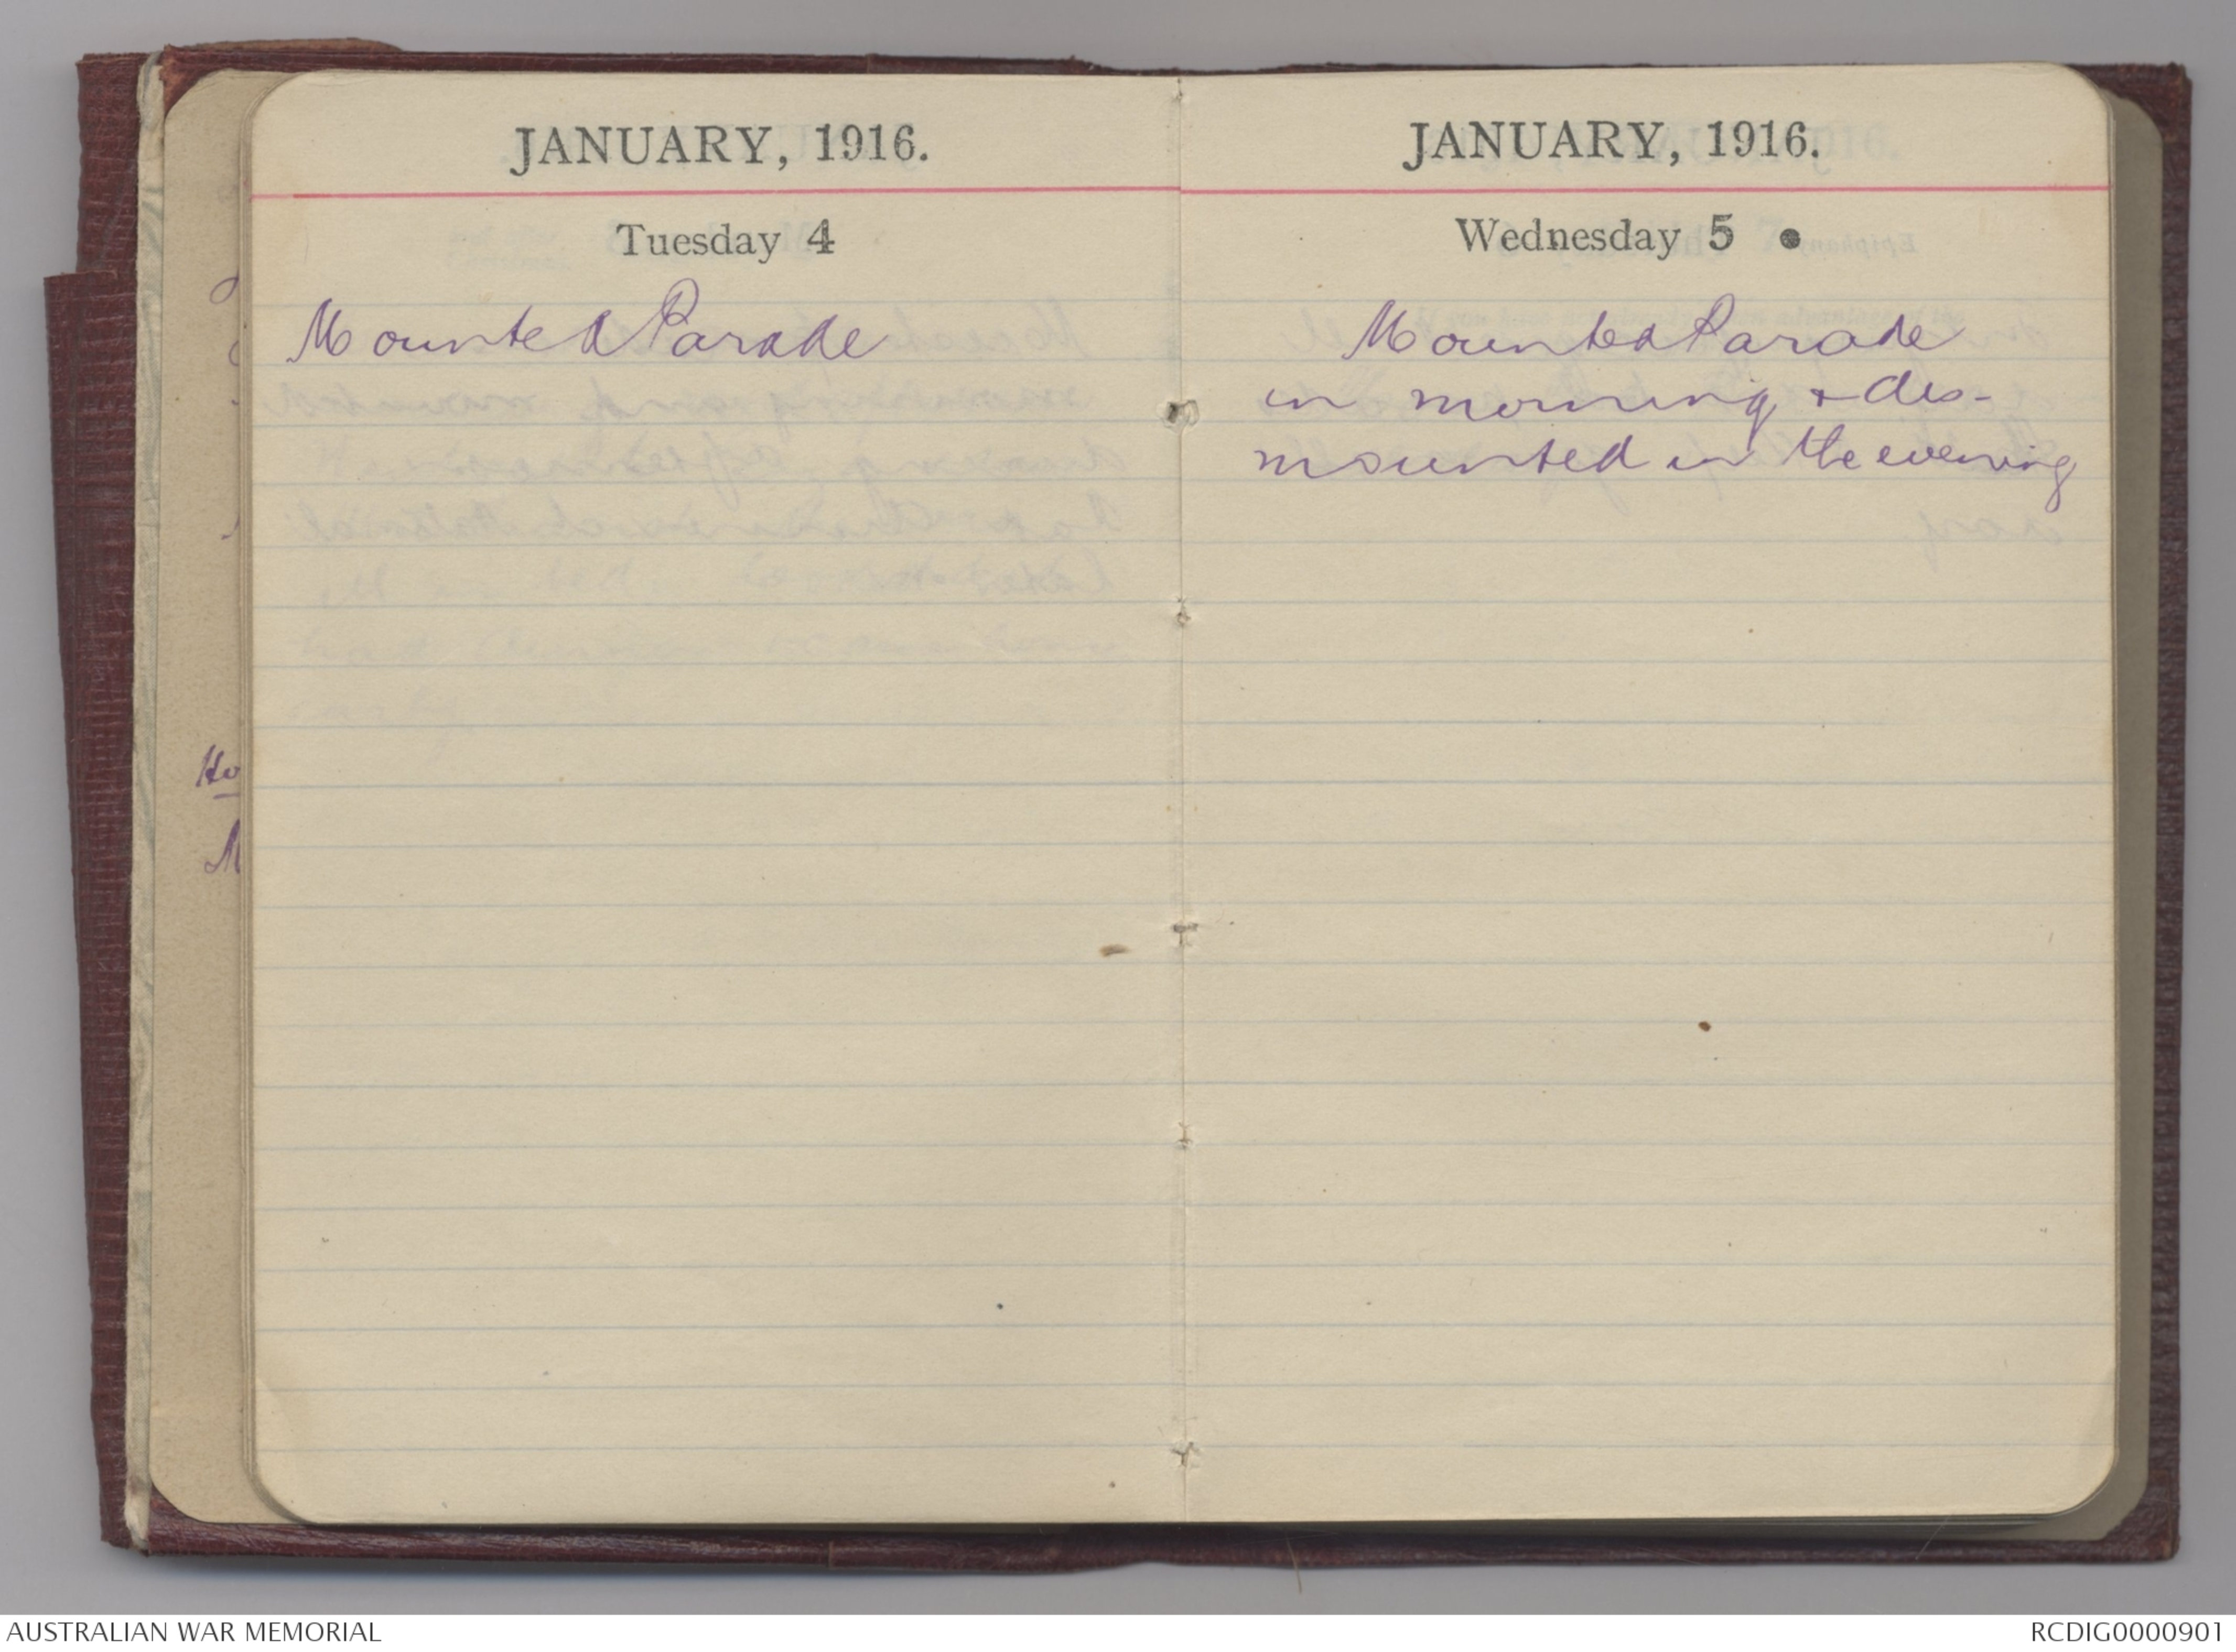 JANUARY, 1916.
Tuesday 4
Mounted Parade
JANUARY, 1916.
Wednesday 5 ●
Mounted Parade
in morning & dis-
mounted in the evening
Ho
M
AUSTRALIAN WAR MEMORIAL
RCDIG0000901